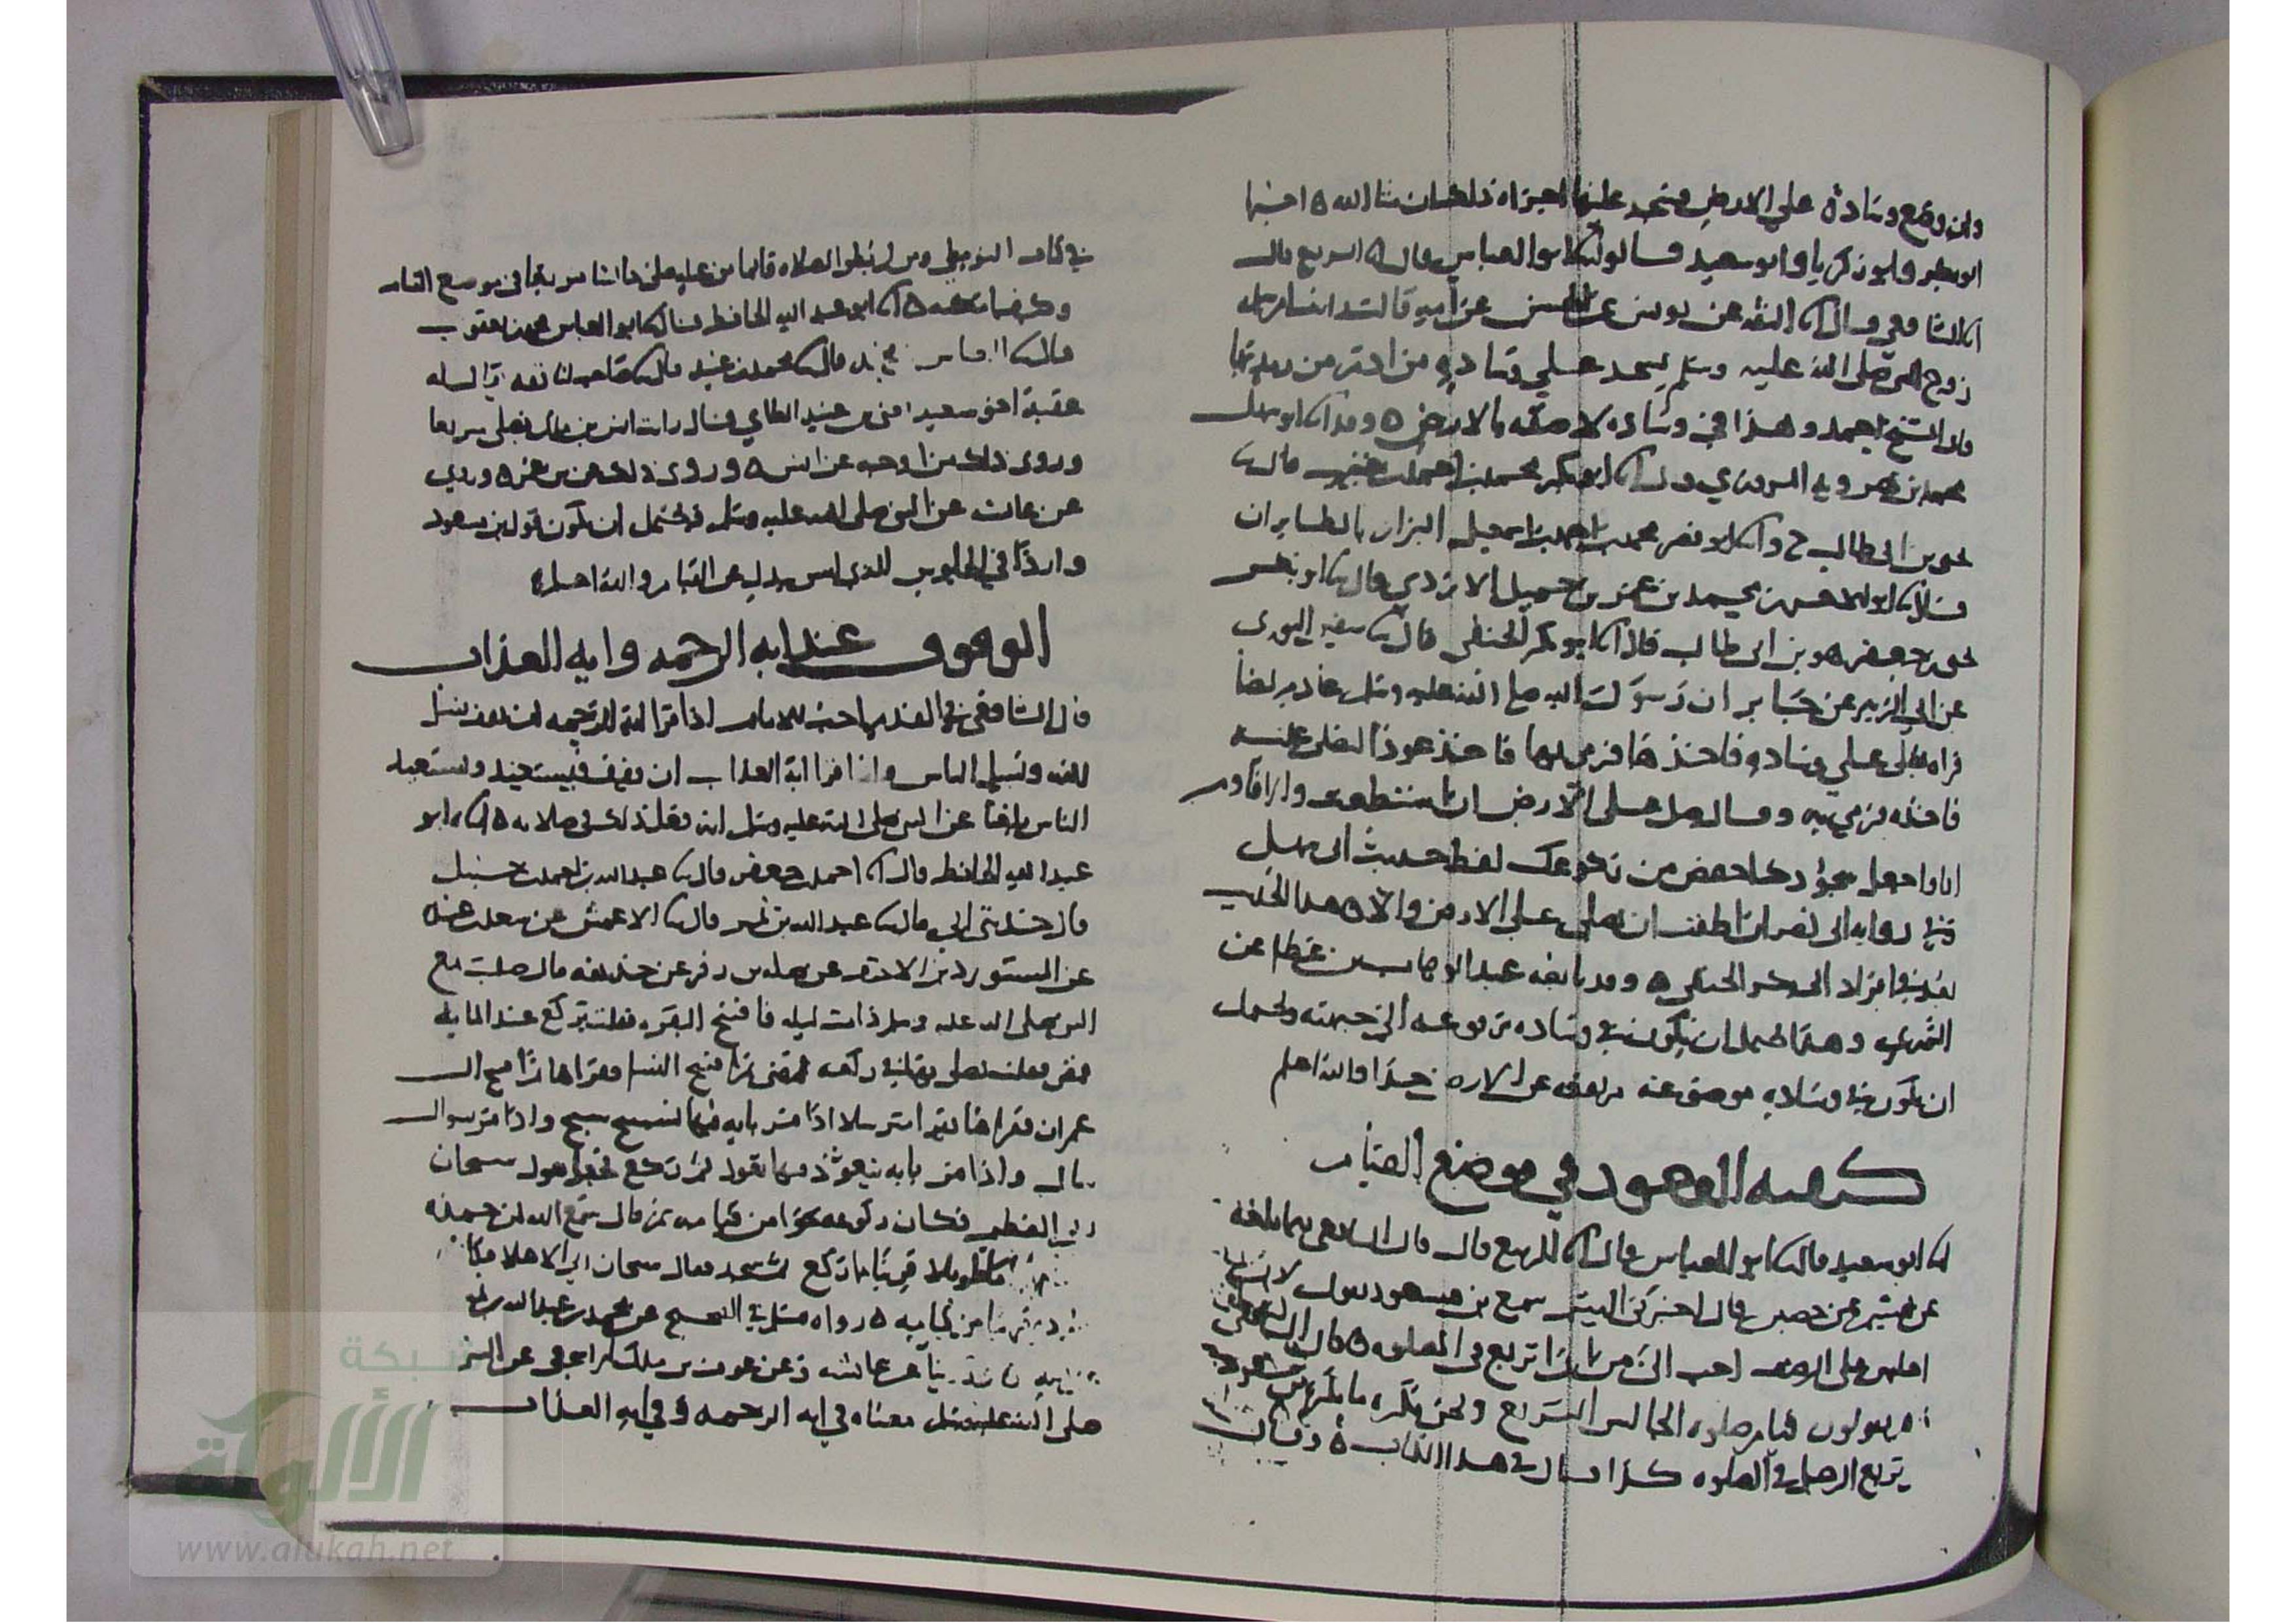 وان وضع وسادة على الارض فسجد عليها اجزاه ذلك ان شا الله ه اخبرنا
ابو بكر وابو زكريا وابو سعيد قالوا ابو العباس قال الربيع قال
الشافعي قال الثقه عن يونس عن الحسن عن امه قالت رايت ام سلمه
زوج النبي صلى الله عليه وسلم تسجد على وساده من ادم من رمد بها
قال الشيخ احمد وهذا في وساده لاصقه بالارض ه وقد ابو سهل
محمد بن نصرويه المروزي قال ابو بكر محمد بن احمد بن خنب قال
يحيى بن ابي طالب ح وا ابو نصر محمد بن احمد بن اسمعيل البزاز بالطابران
قال محمد بن عمر بن جميل الازدي قال ابو بكر
يحيى بن جعفر هو بن ابي طالب قال ابو بكر الحنفي قال سفين الثوري
عن ابي الزبير عن جابر ان رسول الله صلى الله عليه وسلم عاد مريضا
فراه يصلي على وساده فاخذها فرمى بها فاخذ عودا ليصلي عليه
فاخذه فرمى به وقال صل على الارض ان استطعت والا فاوم
ايما واجعل سجودك اخفض من ركوعك لفظ حديث ابي سهل
وفي روايه ابي نصر ان اطقت ان تصلي على الارض والا ه هذا الحديث
يعد في افراد ابي بكر الحنفي ه وقد تابعه عبد الوهاب بن عطا عن
الثوري وهذا يحتمل ان يكون في وساده مرفوعه الى جبهته ويحتمل
ان يكون في وساده موضوعه مرتفعه عن الارض جدا والله اعلم
كيفيه القعود في موضع القيام
ابو سعيد قال ابو العباس قال الربيع قال قال الشافعي فيما بلغه
عن هشيم عن حصين قال اخبرني الهيثم سمع بن مسعود يقول لان
اجلس على الرضف احب الي من ان اتربع في الصلوه ه قال الشافعي
يقولون قيام صلوه الجالس التربع ونحن نكره ما يكره بن مسعود من
تربع الرجل في الصلوه كذا قال في هذا الكتاب ه وقال
في كتاب البويطي ومن لم يطق الصلاه قايما من عله صلى جالسا متربعا في موضع القيام
ابو عبد الله الحافظ قال ابو العباس محمد بن يعقوب
قال العباس بن محمد قال محمد بن عبيد قال صاحب لنا ثقه
عقبة اخو سعيد بن عبيد الطاي قال رايت انس بن مالك يصلي متربعا
وروي ذلك من اوجه عن انس ه وروي ذلك عن بن عمر ه وروي
عن عائشه عن النبي صلى الله عليه وسلم فيحتمل ان يكون قول ابن مسعود
واردا في الجلوس الذي ليس ببدل عن القيام والله اعلم ه
الوقوف عند ايه الرحمه وايه العذاب
قال الشافعي في القديم احب للامام اذا قرا اية الرحمه ان يقف فيسل
الله ويسل الناس واذا قرا اية العذاب ان يقف فيستعيذ ويستعيذ
الناس بلغنا عن النبي صلى الله عليه وسلم انه فعل ذلك في صلاته ه ابو
عبد الله الحافظ قال احمد بن جعفر قال عبد الله بن احمد بن حنبل
قال حدثني ابي قال عبد الله بن نمير قال الاعمش عن سعد بن عبيده
عن المستورد بن الاحنف عن صله بن زفر عن حذيفه قال صليت مع
النبي صلى الله عليه وسلم ذات ليله فافتتح البقره فقلت يركع عند المايه
فمضى فقلت يصلي بها في ركعه فمضى ثم افتتح النسا فقراها ثم افتتح ال
عمران فقراها يقرا مترسلا اذا مر بايه فيها تسبيح سبح واذا مر بسوال
سال واذا مر بايه تعوذ تعوذ ثم ركع فجعل يقول سبحان
ربي العظيم فكان ركوعه نحوا من قيامه ثم قال سمع الله لمن حمده
طويلا قريبا مما ركع ثم سجد فقال سبحان ربي الاعلى فكان
قريبا من قيامه ه رواه مسلم في الصحيح عن محمد بن عبد الله بن نمير
عن عائشه وعن عوف بن مالك الاشجعي عن النبي
صلى الله عليه وسلم معناه في ايه الرحمه وفي ايه العذاب
شبكة
الألوكة
www.alukah.net